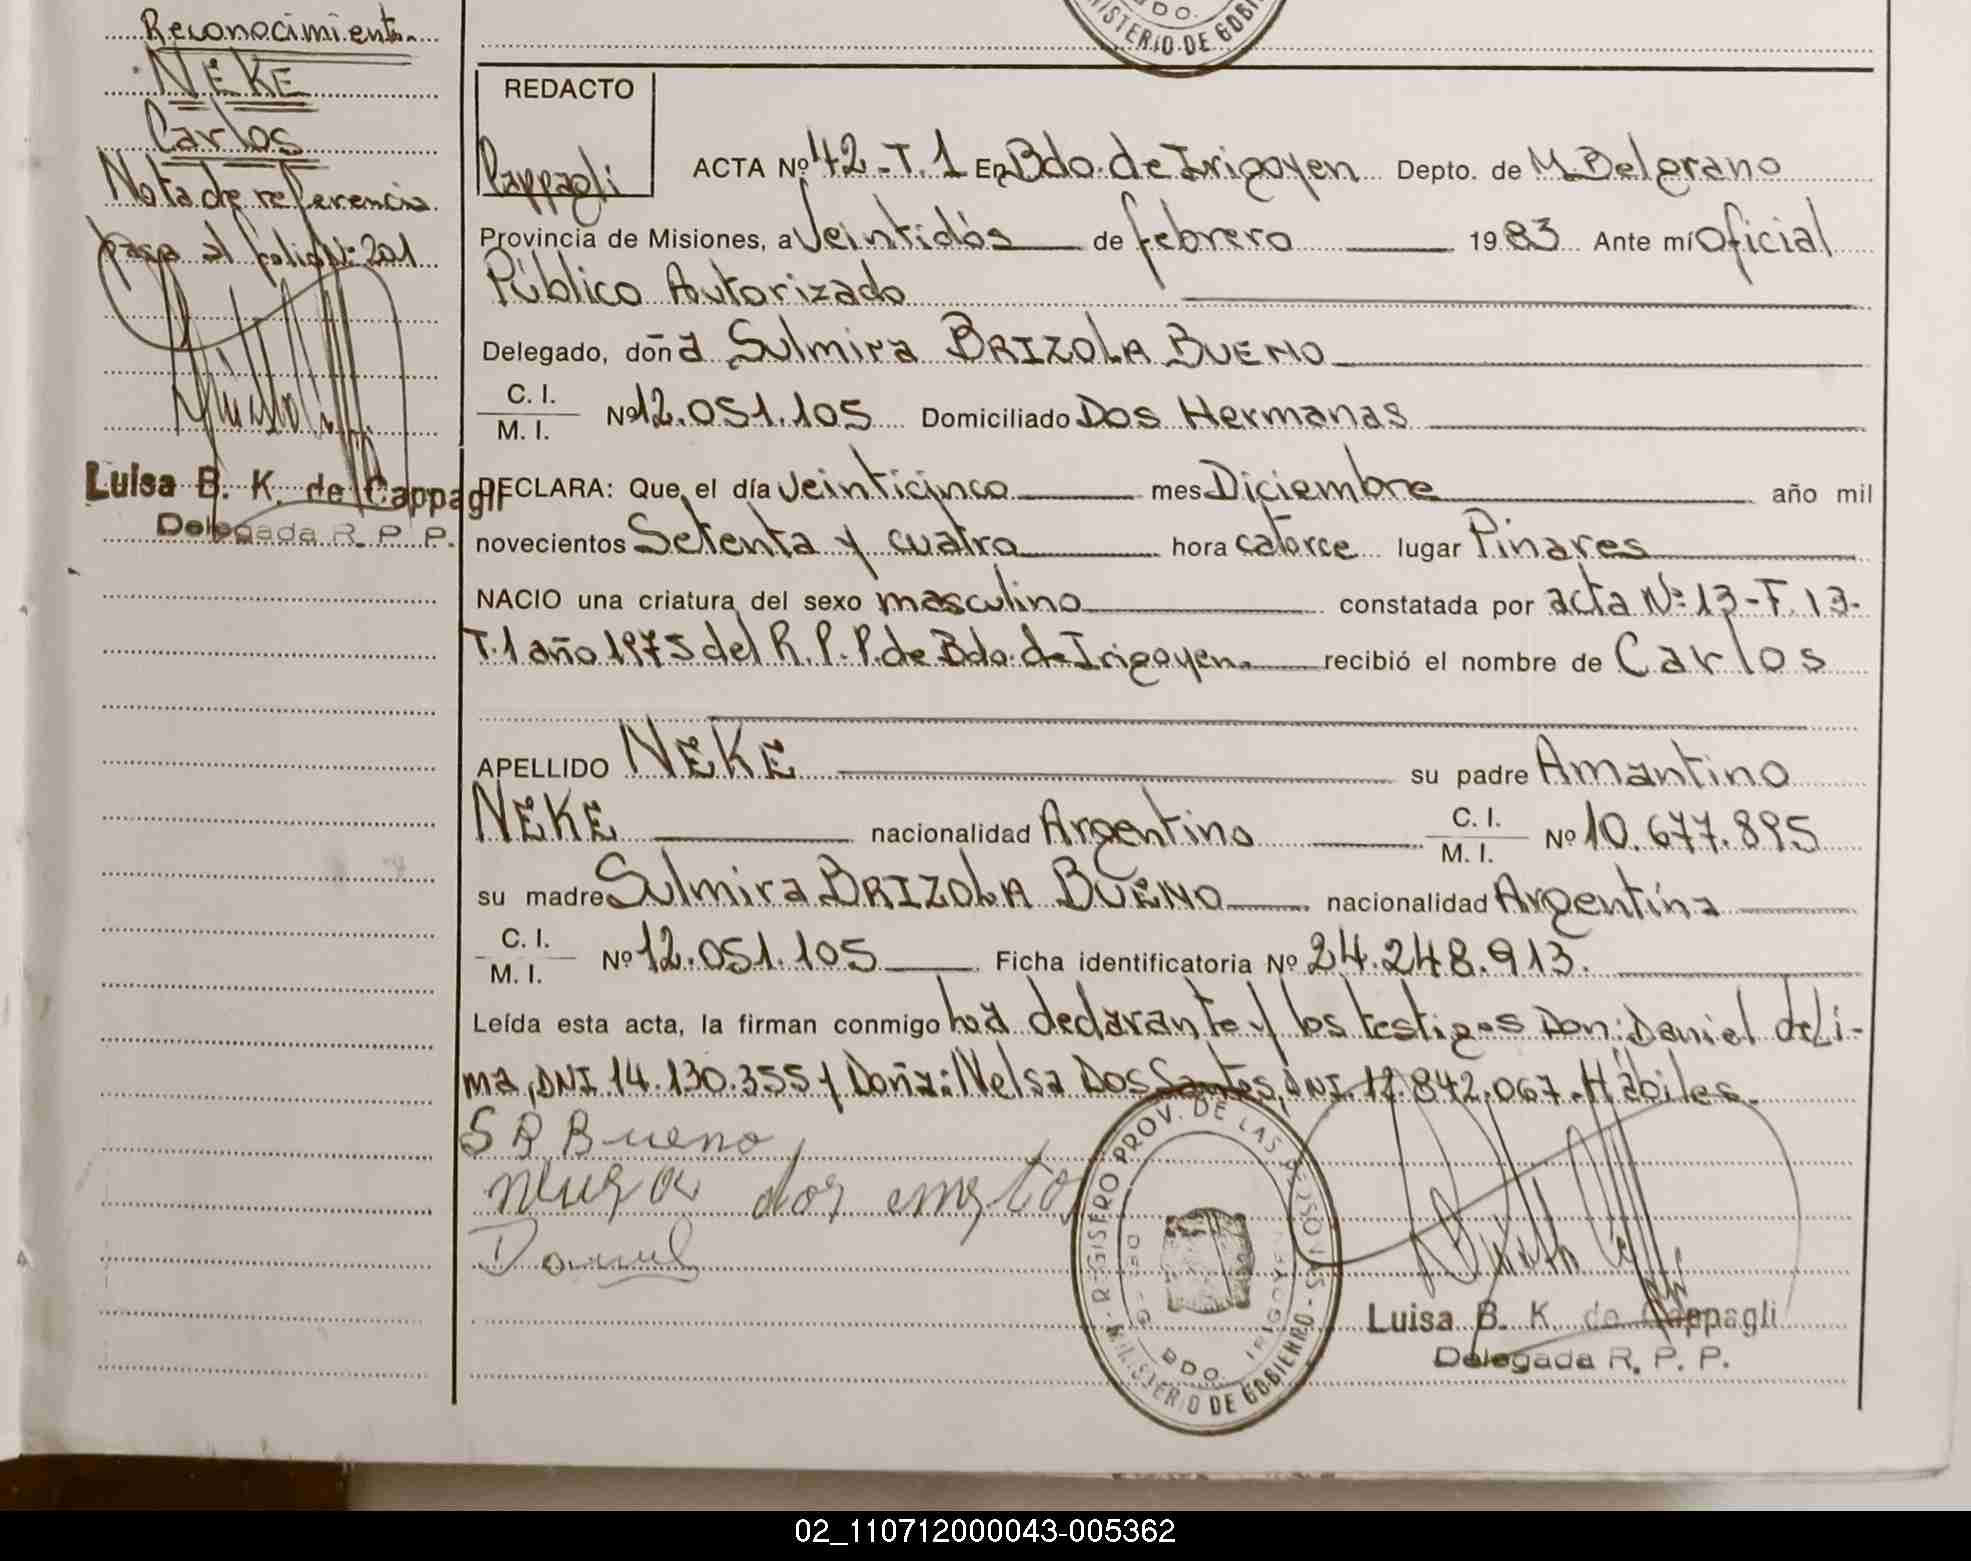 Reconocimiento.
NEKE
Carlos
Nota de referencia
pasa al folio Nº 201
Luisa B. K. de Cappagli
Delegada R. P. P.
MINISTERIO DE GOBIERNO
BDO.
REDACTO
Cappagli
ACTA Nº 42-T.1 En Bdo. de Irigoyen Depto. de M. Belgrano
Provincia de Misiones, a Veintidós de febrero 1983 Ante mí Oficial
Público Autorizado
Delegado, doña Sulmira BRIZOLA BUENO
C. I.
M. I. Nº 12.051.105 Domiciliado Dos Hermanas
DECLARA: Que, el día veinticinco mes Diciembre año mil
novecientos Setenta y cuatro hora catorce lugar Pinares
NACIO una criatura del sexo masculino constatada por acta Nº 13-F. 13-
T.1 año 1975 del R. P. P. de Bdo. de Irigoyen. recibió el nombre de Carlos
APELLIDO NEKE su padre Amantino
NEKE nacionalidad Argentino C. I.
M. I. Nº 10.677.895
su madre Sulmira BRIZOLA BUENO nacionalidad Argentina
C. I.
M. I. Nº 12.051.105 Ficha identificatoria Nº 24.248.913.
Leída esta acta, la firman conmigo la declarante y los testigos Don: Daniel de Li-
ma, DNI. 14.130.355 y Doña: Nelsa Dos Santos, DNI. 12.842.067. Hábiles.
S B Bueno
dos
Daniel
REGISTRO PROV. DE LAS PERSONAS - MINISTERIO DE GOBIERNO
BDO. IRIGOYEN
Luisa B. K. de Cappagli
Delegada R. P. P.
02_110712000043-005362